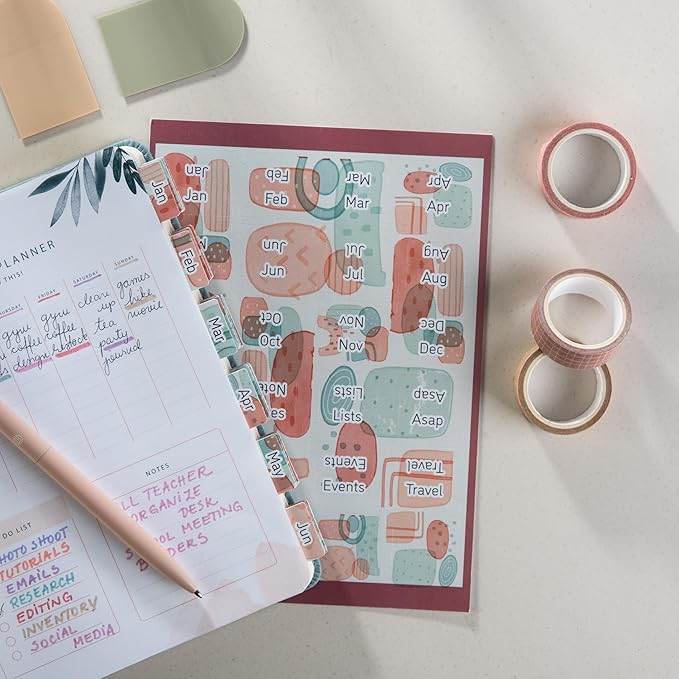 PLANNER
THIS!
FRIDAY
SATURDAY
SUNDAY
gym
coffee
design
gym
coffee
restock
clean
up
tea
party
journal
games
hike
movie
NOTES
LL TEACHER
RGANIZE
DESK
OOL MEETING
DERS
DO LIST
PHOTO SHOOT
TUTORIALS
EMAILS
RESEARCH
EDITING
INVENTORY
SOCIAL
MEDIA
Jan
Feb
Mar
Apr
May
Jun
Jan
Feb
Mar
Apr
Jan
Feb
Mar
Apr
Jun
Jul
Aug
Jun
Jul
Aug
Oct
Nov
Dec
Oct
Nov
Dec
Notes
Lists
Asap
es
Lists
Asap
Events
Travel
Events
Travel